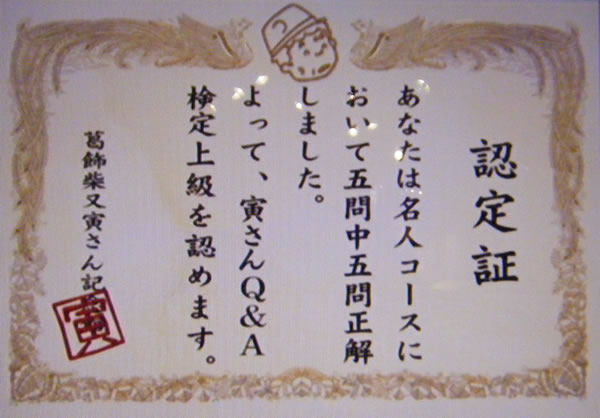 認定証
あなたは名人コースに
おいて五問中五問正解
しました。
よって、寅さんQ&A
検定上級を認めます。
葛飾柴又寅さん記念館
寅